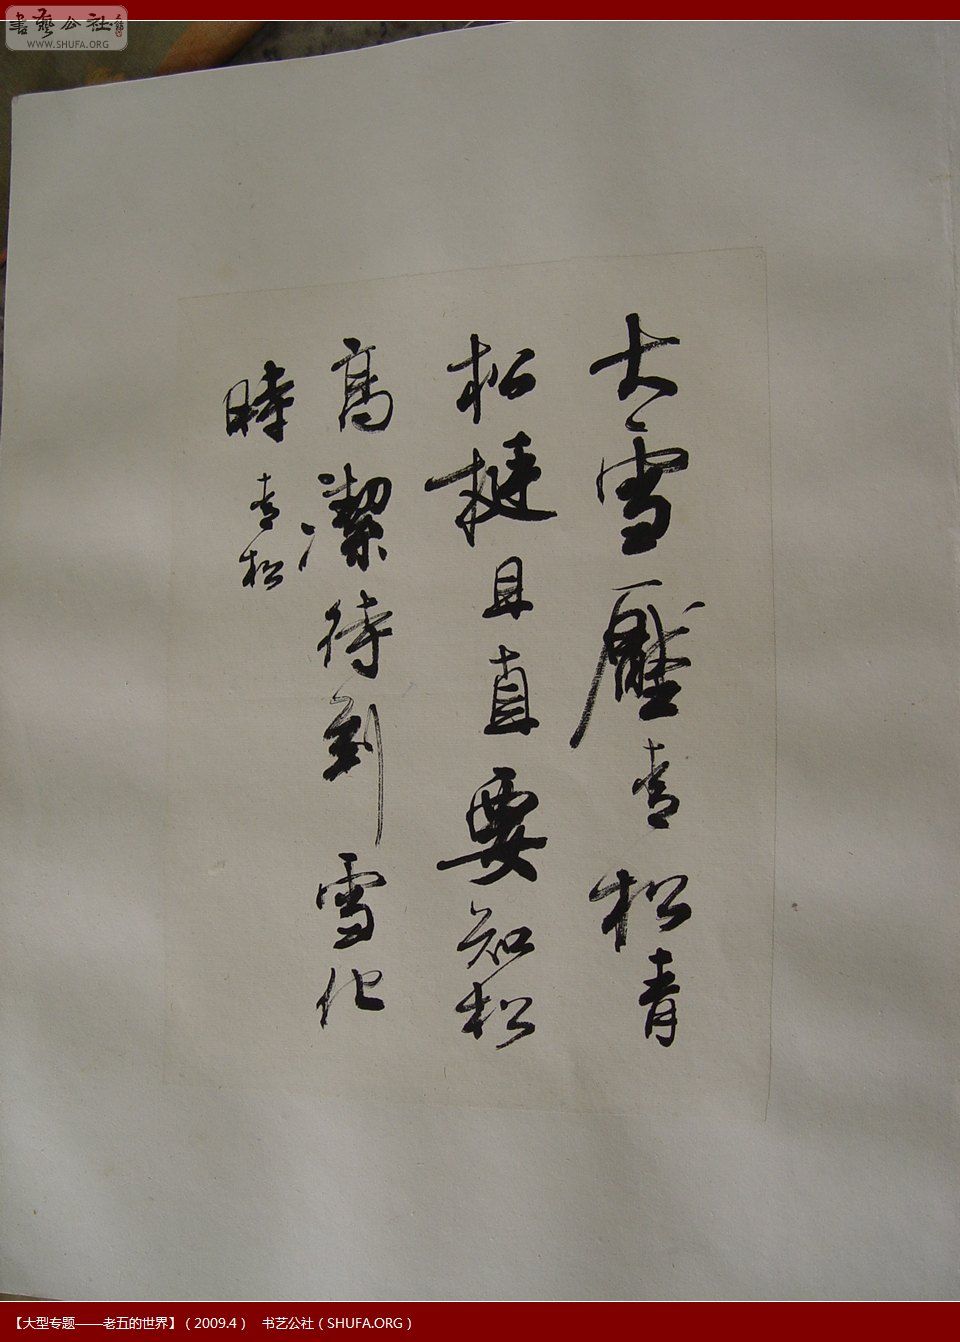 書藝公社
WWW.SHUFA.ORG
大雪壓青松青
松挺且直要知松
高潔待到雪化
時 青松
【大型专题——老五的世界】（2009.4） 书艺公社（SHUFA.ORG）